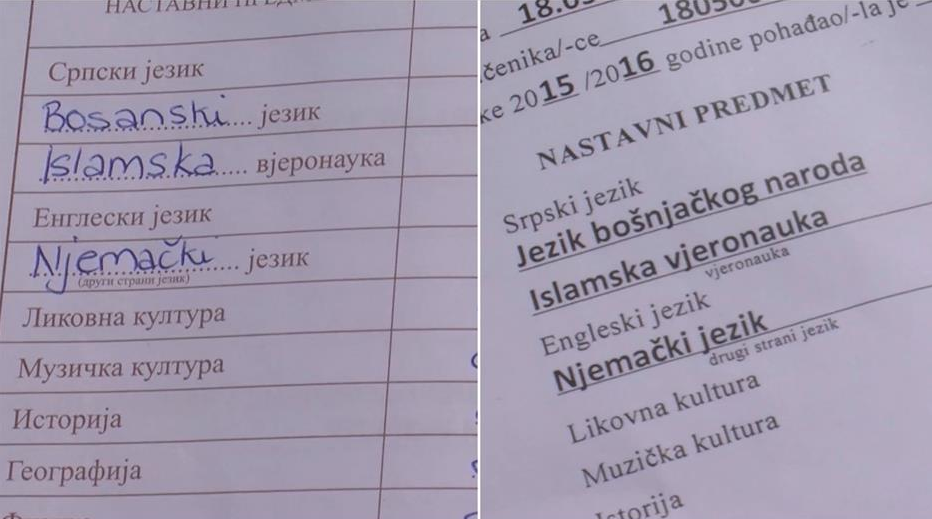 НАСТАВНИ
Српски језик
Bosanski.... језик
Islamska..... вјеронаука
Енглески језик
Njemački.... језик
(други страни језик)
Ликовна култура
Музичка култура
Историја
Географија
18.0
čenika/-ce
ke 2015 /2016 godine pohađao/-la je
NASTAVNI PREDMET
Srpski jezik
Jezik bošnjačkog naroda
Islamska vjeronauka
vjeronauka
Engleski jezik
Njemački jezik
drugi strani jezik
Likovna kultura
Muzička kultura
Istorija